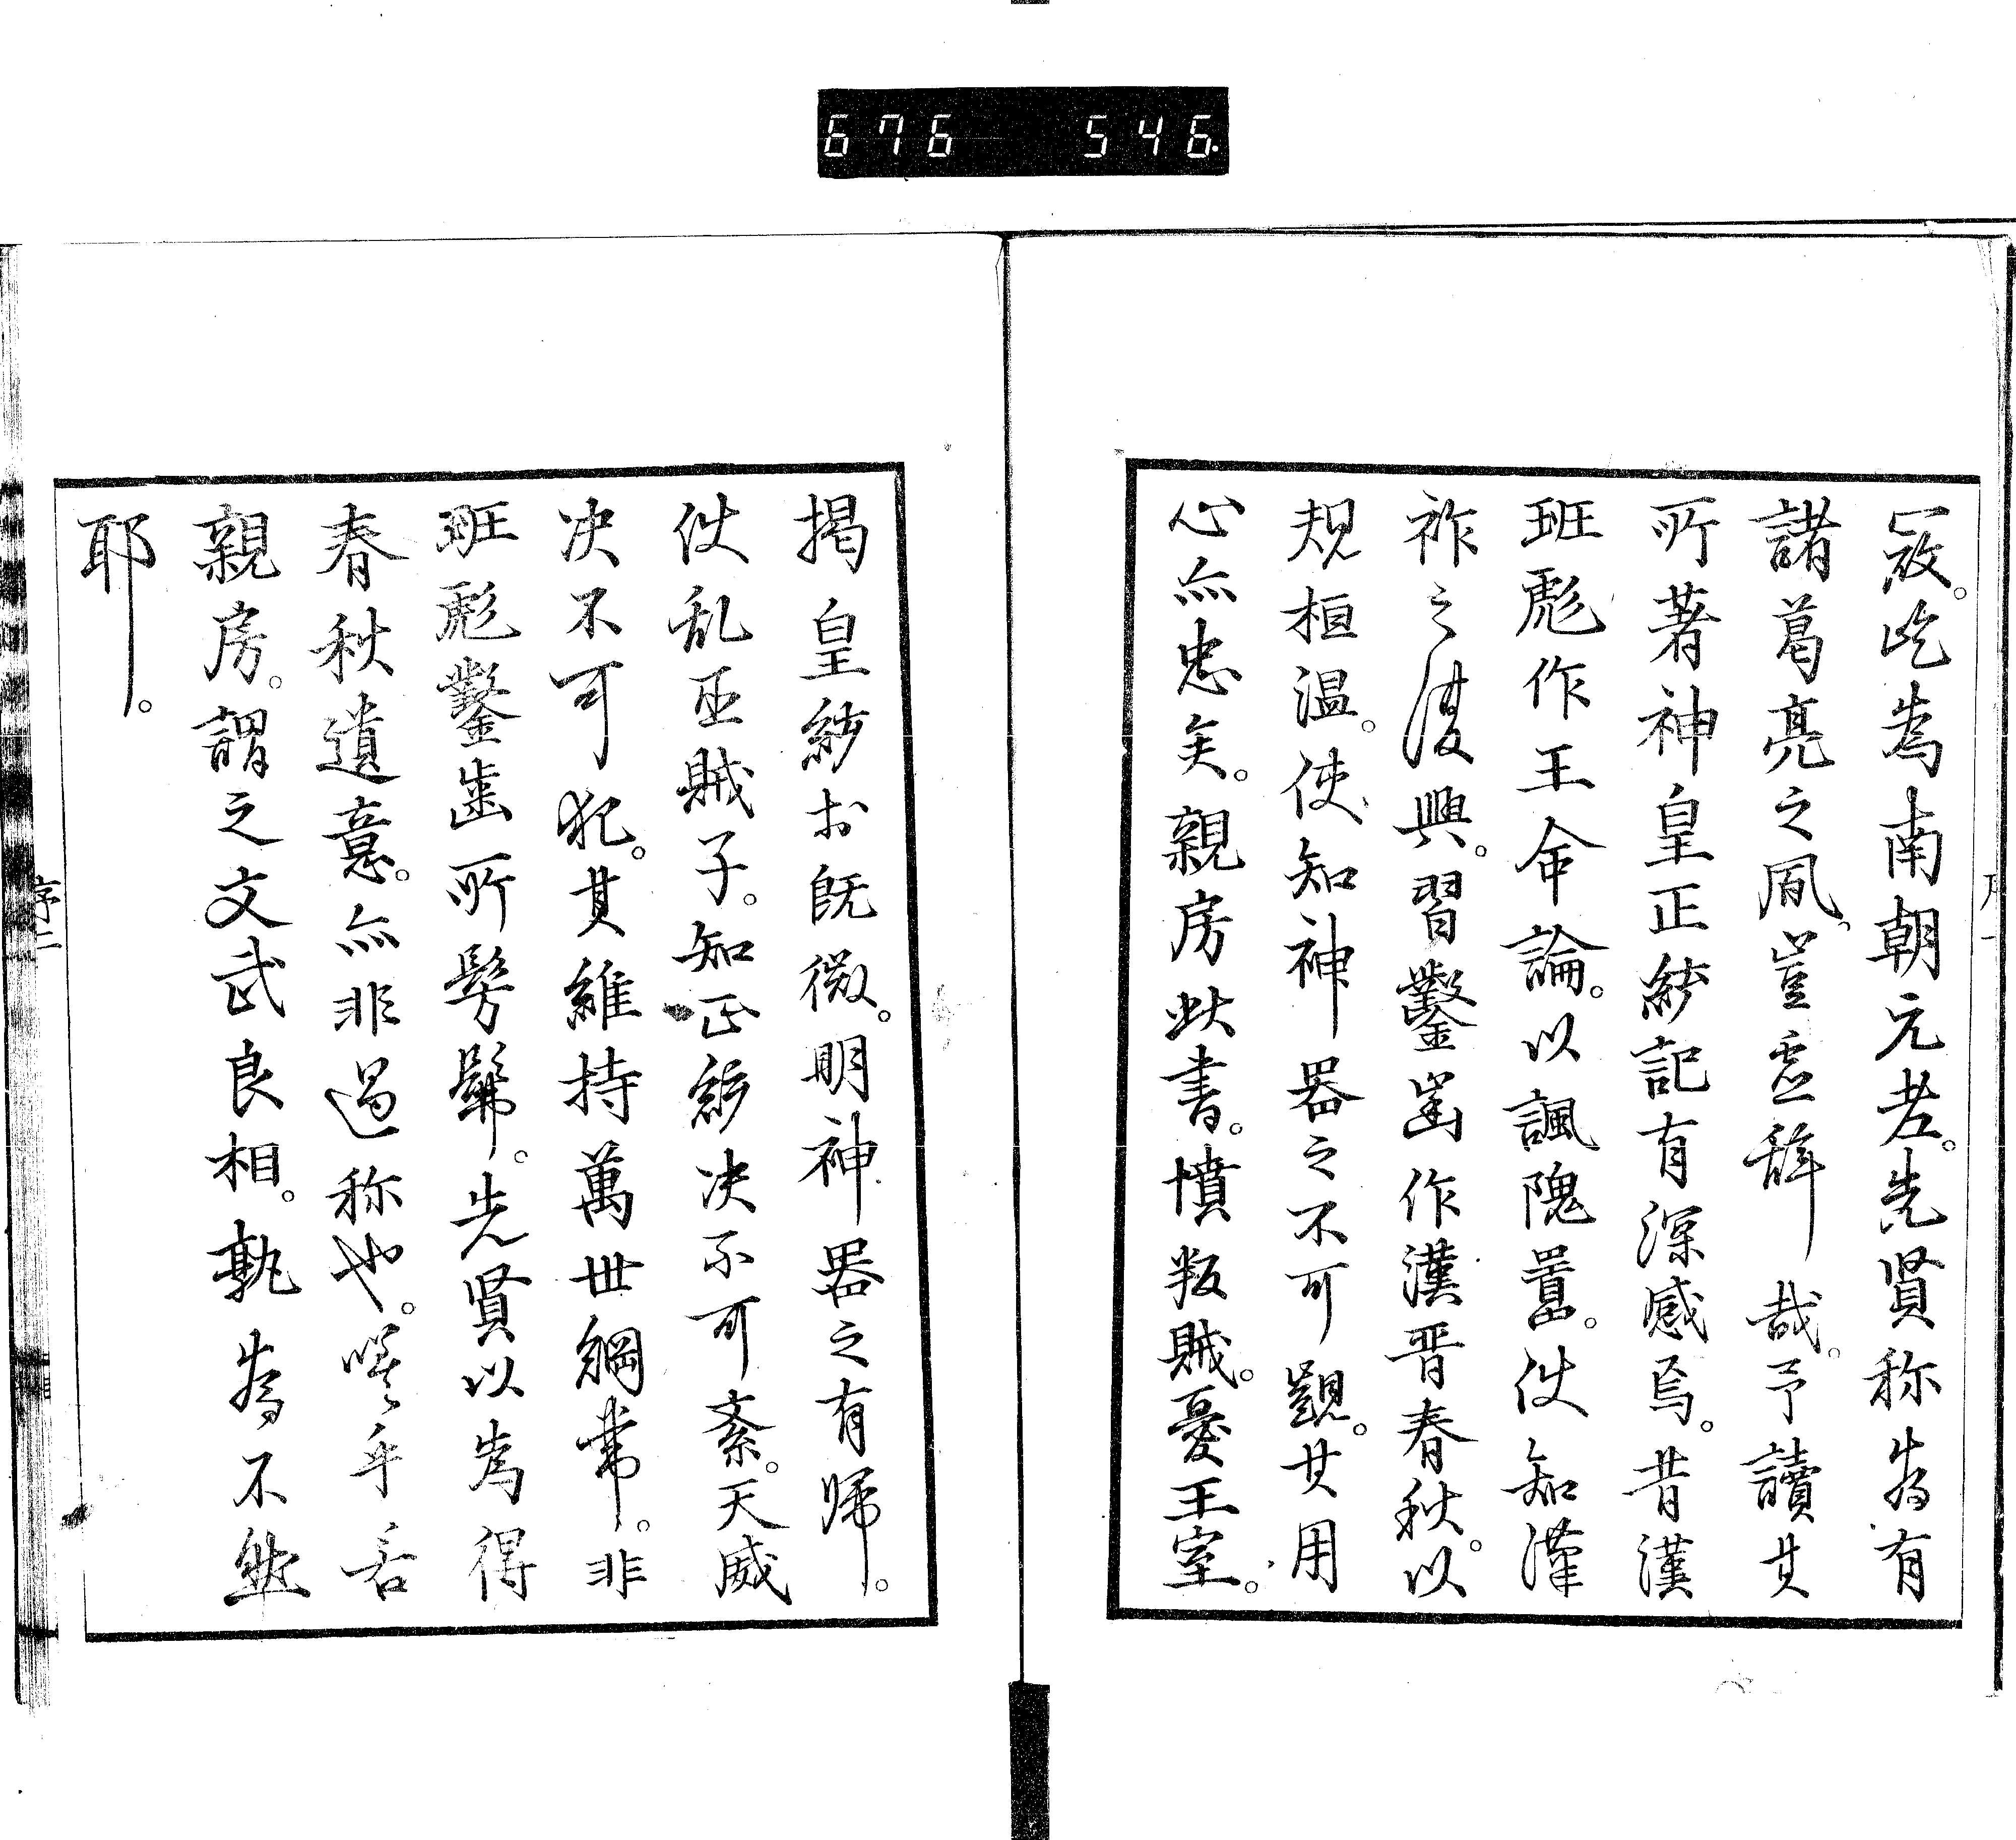 676 546.
寇。屹為南朝元老。先賢称為有
諸葛亮之風。豈虚辭哉。予讀其
所著神皇正統記有深感焉。昔漢
班彪作王命論。以諷隗囂。使知漢
祚之復興。習鑿齒作漢晋春秋。以
規桓温。使知神器之不可覬。其用
心亦忠矣。親房此書。憤叛賊。憂王室。
揭皇統於既微。明神器之有歸。
使乱臣賊子。知正統决不可紊。天威
决不可犯。其維持萬世綱常。非
班彪鑿齒所髣髴。先賢以為得
春秋遺意。亦非過称也。嗟乎若
親房。謂之文武良相。孰為不然
耶。
序二